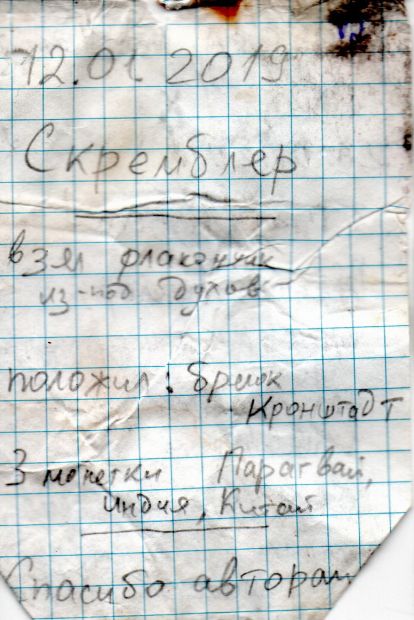 12.01 2019
Скремблер
взял флакончик
из-под духов
положил: брелок
Кронштадт
3 монетки Парагвай,
Индия, Китай
Спасибо авторам